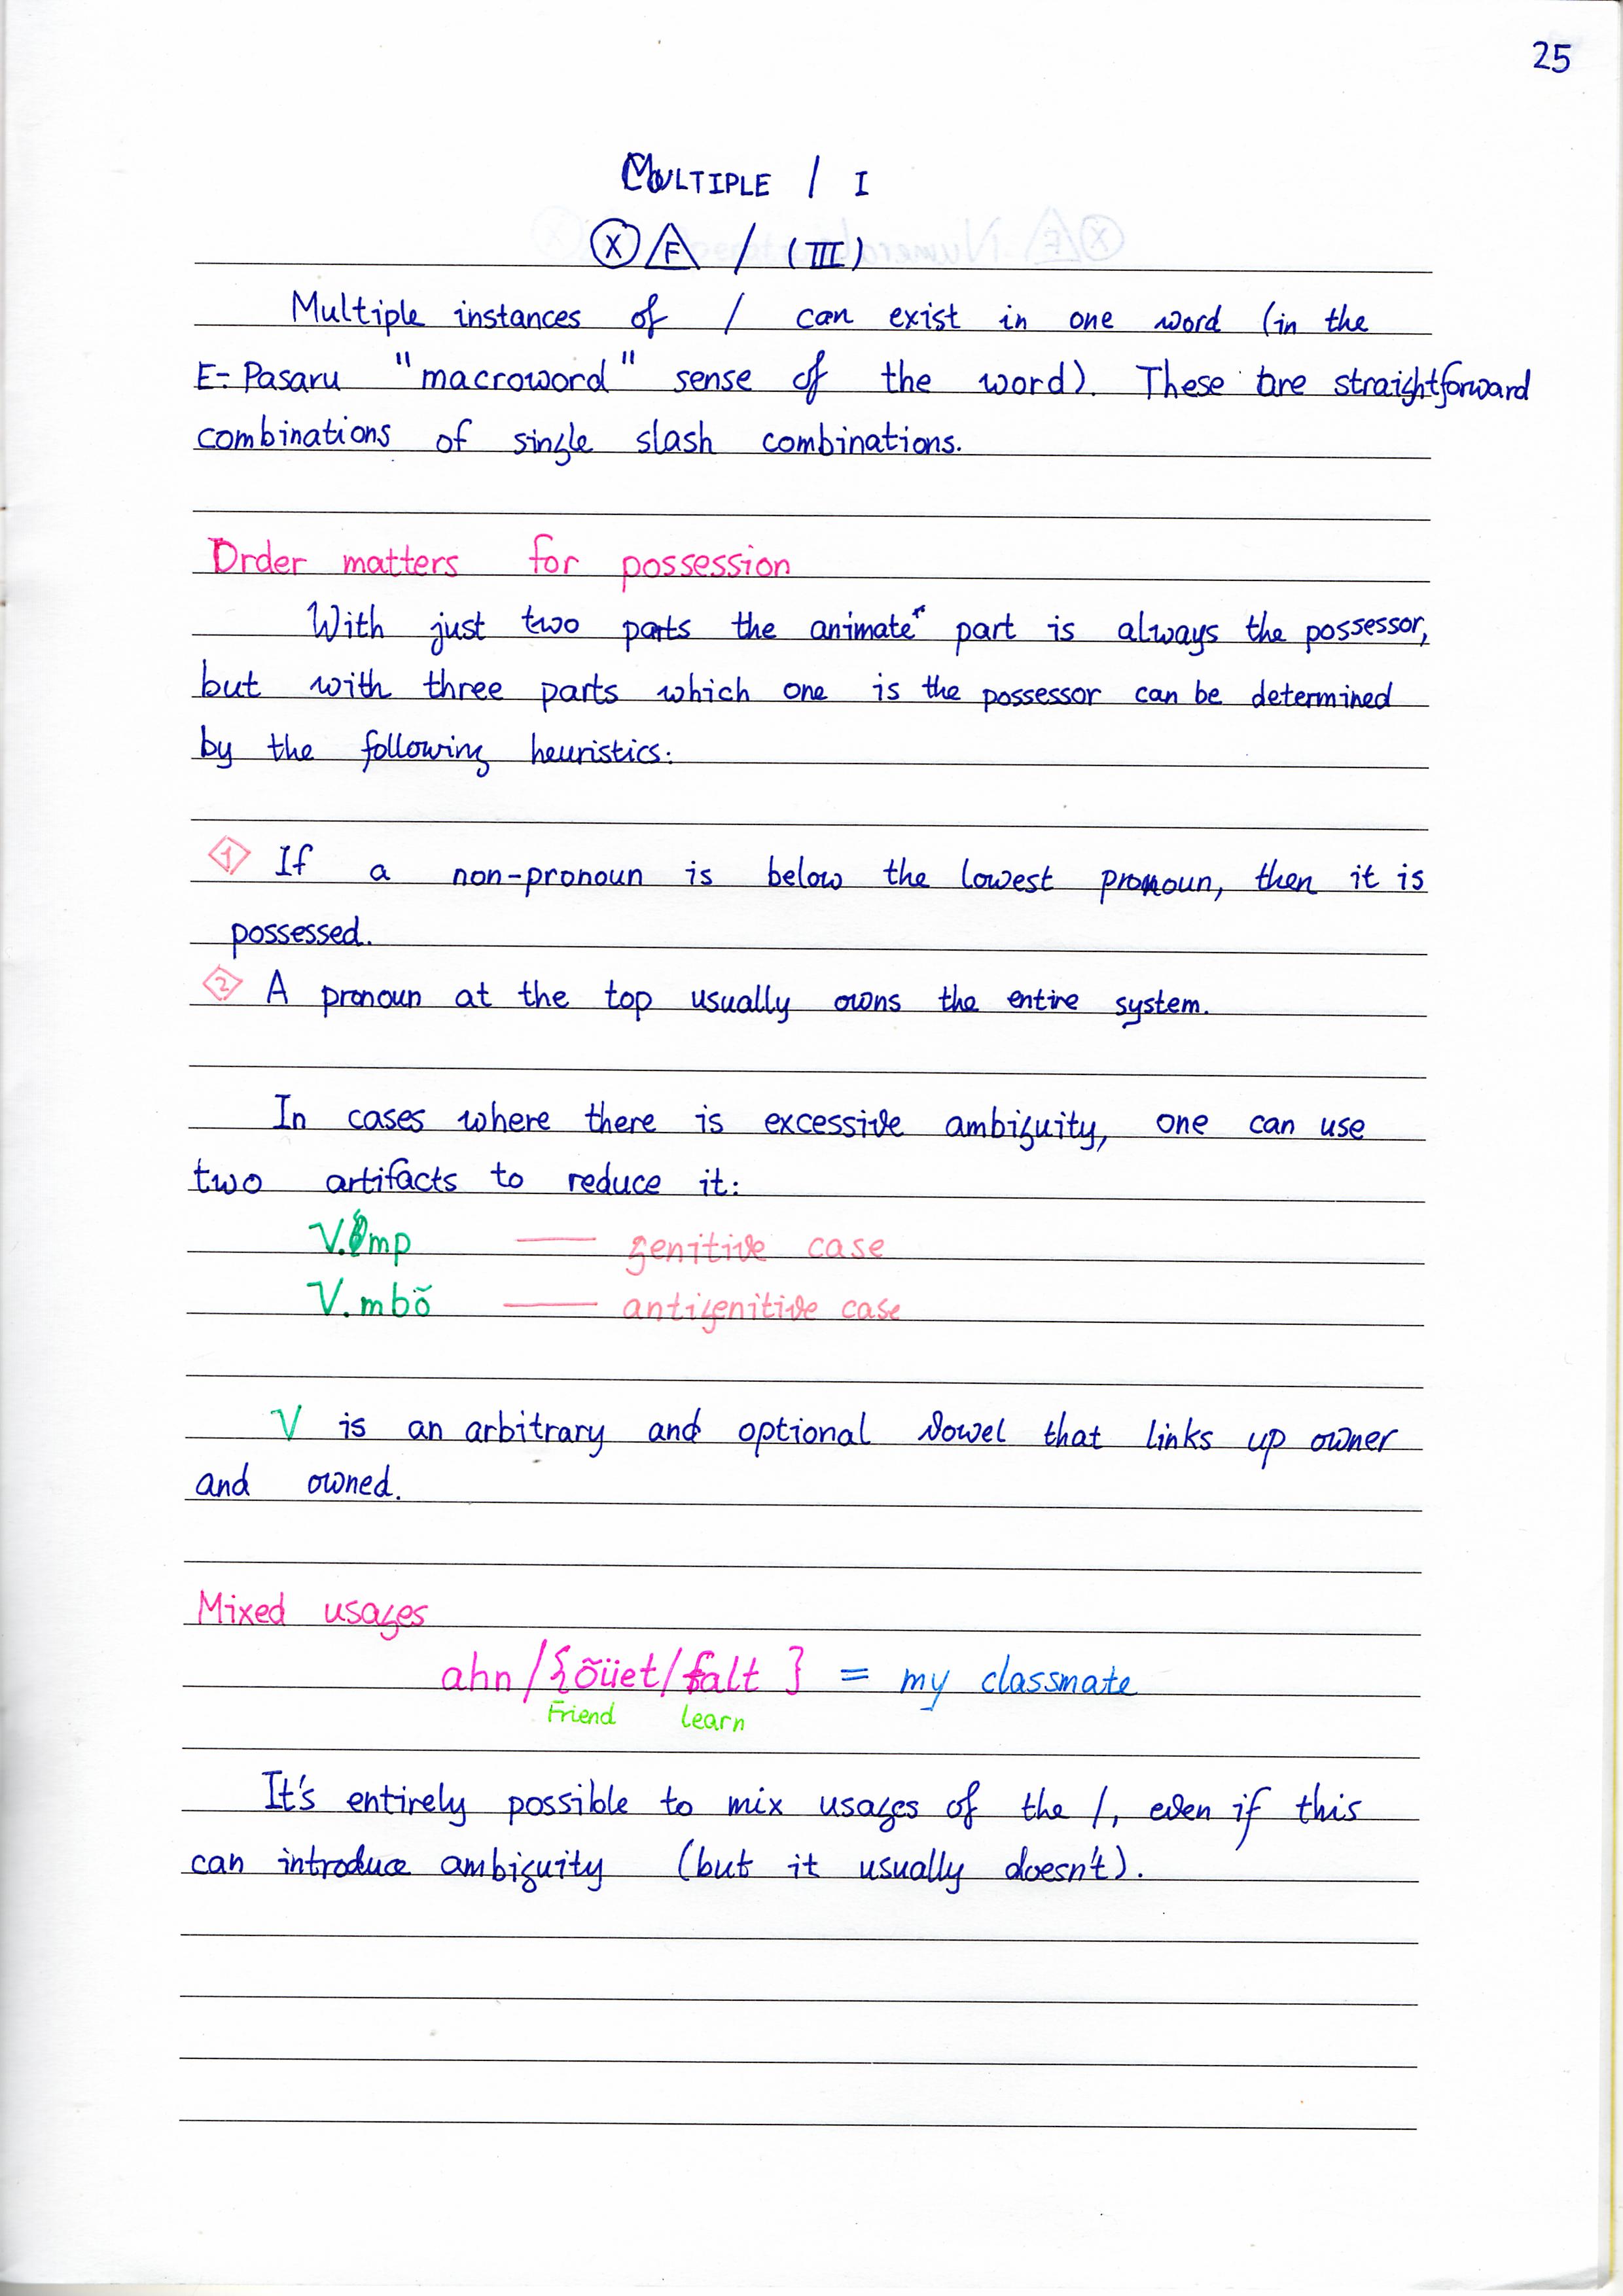 25
MULTIPLE / I
X F / (III)
Multiple instances of / can exist in one word (in the
E-Pasaru "macroword" sense of the word). These are straightforward
combinations of single slash combinations.
Order matters for possession
With just two parts the animate* part is always the possessor,
but with three parts which one is the possessor can be determined
by the following heuristics:
1 If a non-pronoun is below the lowest pronoun, then it is
possessed.
2 A pronoun at the top usually owns the entire system.
In cases where there is excessive ambiguity, one can use
two artifacts to reduce it:
— genitive case
V.mbõ — antigenitive case
V is an arbitrary and optional vowel that links up owner
and owned.
Mixed usages
ahn/{õüet/falt } = my classmate
Friend learn
It's entirely possible to mix usages of the /, even if this
can introduce ambiguity (but it usually doesn't).